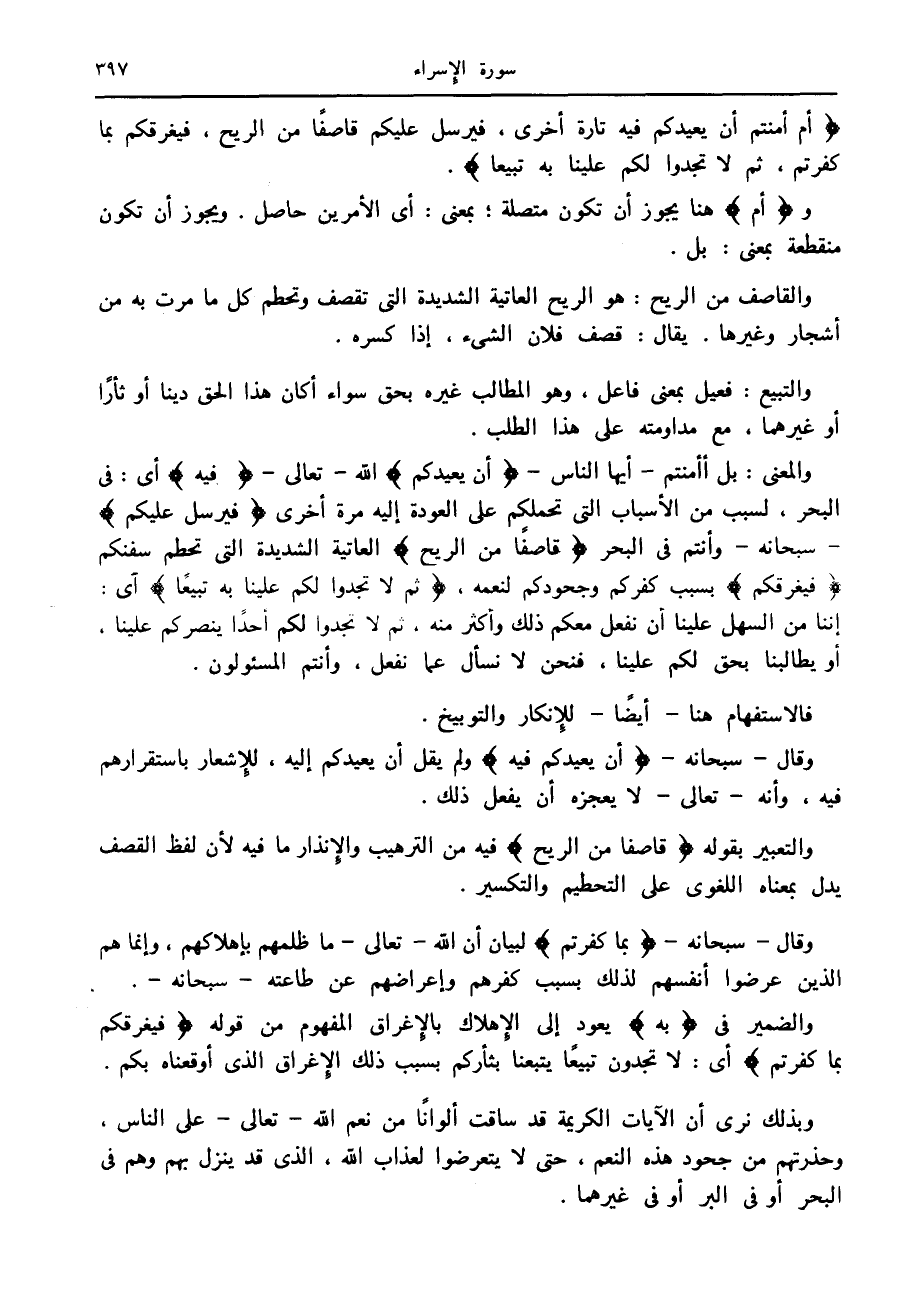 سورة الإسراء ٣٩٧
﴿ أم أمنتم أن يعيدكم فيه تارة أخرى ، فيرسل عليكم قاصفًا من الريح ، فيغرقكم بما
كفرتم ، ثم لا تجدوا لكم علينا به تبيعا ﴾ .
و ﴿ أم ﴾ هنا يجوز أن تكون متصلة ؛ بمعنى : أى الأمرين حاصل . ويجوز أن تكون
منقطعة بمعنى : بل .
والقاصف من الريح : هو الريح العاتية الشديدة التى تقصف وتحطم كل ما مرت به من
أشجار وغيرها . يقال : قصف فلان الشىء ، إذا كسره .
والتبيع : فعيل بمعنى فاعل ، وهو المطالب غيره بحق سواء أكان هذا الحق دينا أو ثأرًا
أو غيرهما ، مع مداومته على هذا الطلب .
والمعنى : بل أأمنتم – أيها الناس – ﴿ أن يعيدكم ﴾ الله – تعالى – ﴿ فيه ﴾ أى : فى
البحر ، لسبب من الأسباب التى تحملكم على العودة إليه مرة أخرى ﴿ فيرسل عليكم ﴾
– سبحانه – وأنتم فى البحر ﴿ قاصفًا من الريح ﴾ العاتية الشديدة التى تحطم سفنكم
﴿ فيغرقكم ﴾ بسبب كفركم وجحودكم لنعمه ، ﴿ ثم لا تجدوا لكم علينا به تبيعًا ﴾ أى :
إننا من السهل علينا أن نفعل معكم ذلك وأكثر منه ، ثم لا تجدوا لكم أحدًا ينصركم علينا ،
أو يطالبنا بحق لكم علينا ، فنحن لا نسأل عما نفعل ، وأنتم المسئولون .
فالاستفهام هنا – أيضًا – للإنكار والتوبيخ .
وقال – سبحانه – ﴿ أن يعيدكم فيه ﴾ ولم يقل أن يعيدكم إليه ، للإشعار باستقرارهم
فيه ، وأنه – تعالى – لا يعجزه أن يفعل ذلك .
والتعبير بقوله ﴿ قاصفا من الريح ﴾ فيه من الترهيب والإنذار ما فيه لأن لفظ القصف
يدل بمعناه اللغوى على التحطيم والتكسير .
وقال – سبحانه – ﴿ بما كفرتم ﴾ لبيان أن الله – تعالى – ما ظلمهم بإهلاكهم ، وإنما هم
الذين عرضوا أنفسهم لذلك بسبب كفرهم وإعراضهم عن طاعته – سبحانه – .
والضمير فى ﴿ به ﴾ يعود إلى الإهلاك بالإغراق المفهوم من قوله ﴿ فيغرقكم
بما كفرتم ﴾ أى : لا تجدون تبيعًا يتبعنا بثأركم بسبب ذلك الإغراق الذى أوقعناه بكم .
وبذلك نرى أن الآيات الكريمة قد ساقت ألوانًا من نعم الله – تعالى – على الناس ،
وحذرتهم من جحود هذه النعم ، حتى لا يتعرضوا لعذاب الله ، الذى قد ينزل بهم وهم فى
البحر أو فى البر أو فى غيرهما .